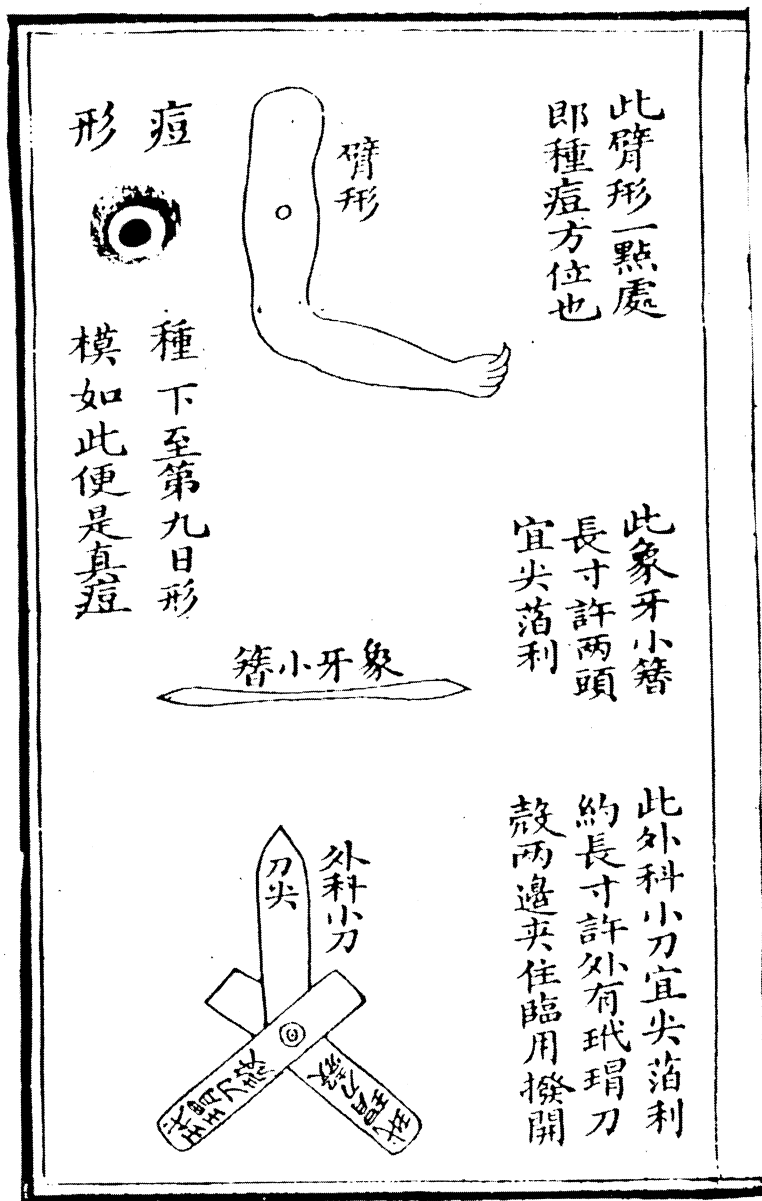 此臂形一點處
即種痘方位也
臂形
痘
形
種下至第九日形
模如此便是真痘
此象牙小簪
長寸許两頭
宜尖萡利
象牙小簪
此外科小刀宜尖萡利
約長寸許外有玳瑁刀
殼两邊夾住臨用撥開
外科小刀
刀尖
玳瑁刀殼
玳瑁刀殼